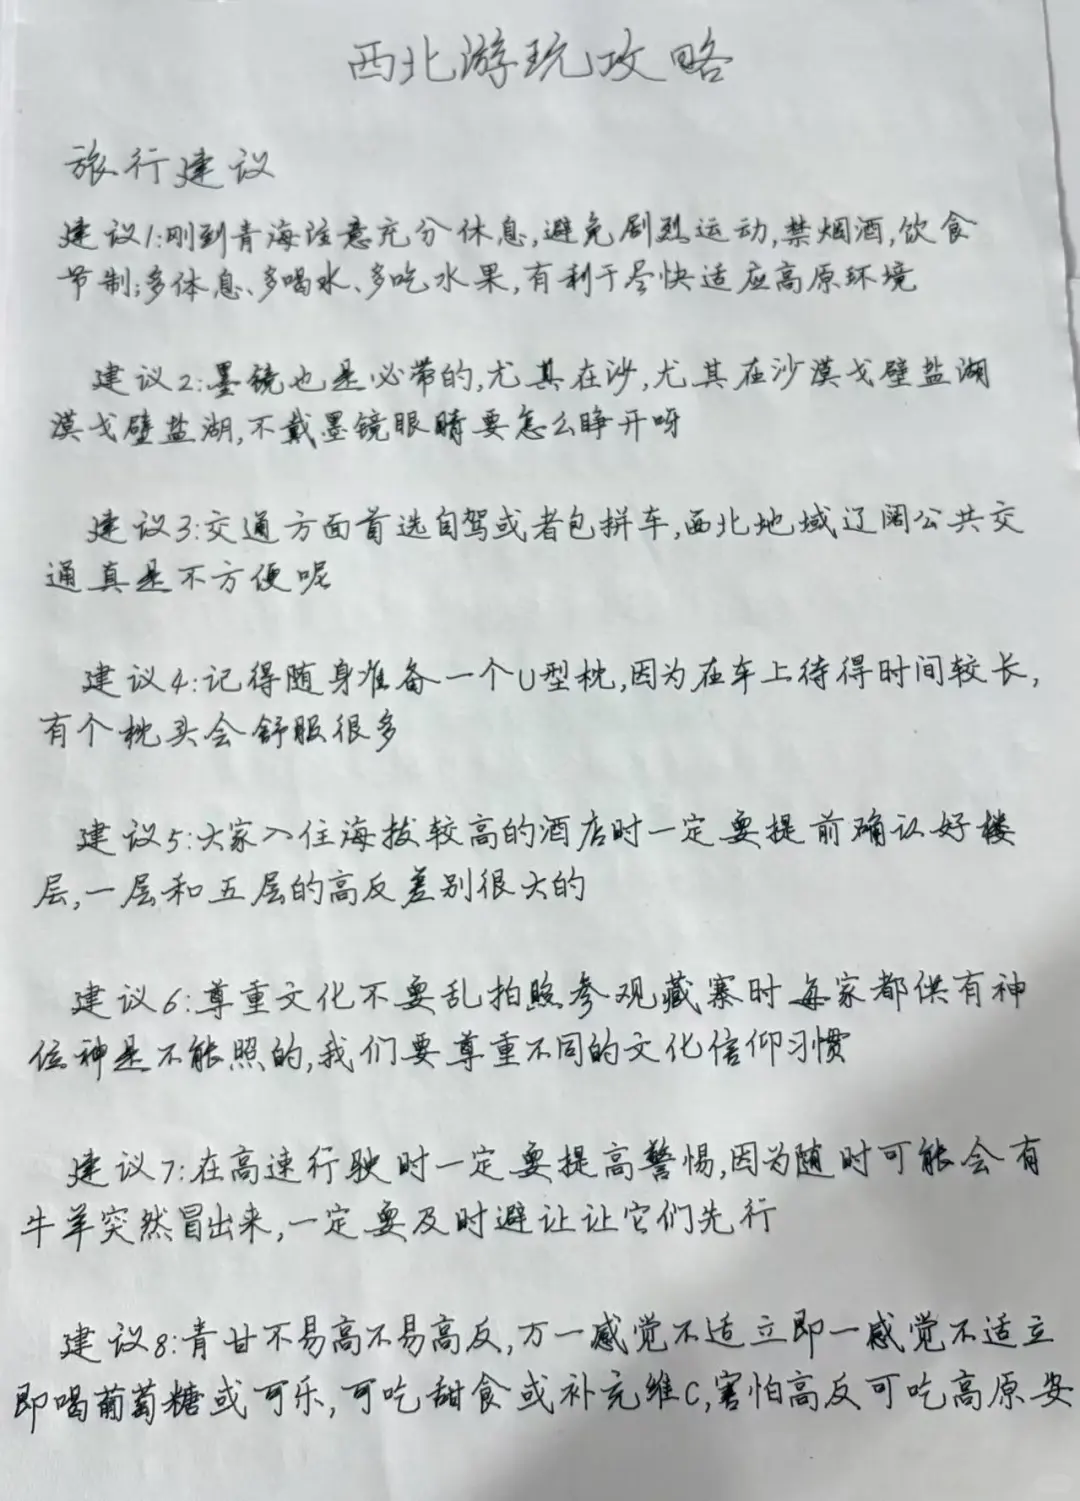 西北游玩攻略
旅行建议
建议1:刚到青海注意充分休息,避免剧烈运动,禁烟酒,饮食
节制;多体息、多喝水、多吃水果,有利于尽快适应高原环境
建议2:墨镜也是必带的,尤其在沙,尤其在沙漠戈壁盐湖
漠戈壁盐湖,不戴墨镜眼睛要怎么睁开呀
建议3:交通方面首选自驾或者包拼车,西北地域辽阔公共交
通真是不方便呢
建议4:记得随身准备一个U型枕,因为在车上待得时间较长,
有个枕头会舒服很多
建议5:大家入住海拔较高的酒店时一定要提前确认好楼
层,一层和五层的高反差别很大的
建议6:尊重文化不要乱拍照参观藏寨时每家都供有神
位神是不能照的,我们要尊重不同的文化信仰习惯
建议7:在高速行驶时一定要提高警惕,因为随时可能会有
牛羊突然冒出来,一定要及时避让让它们先行
建议8:青甘不易高不易高反,万一感觉不适立即一感觉不适立
即喝葡萄糖或可乐,可吃甜食或补充维C,害怕高反可吃高原安